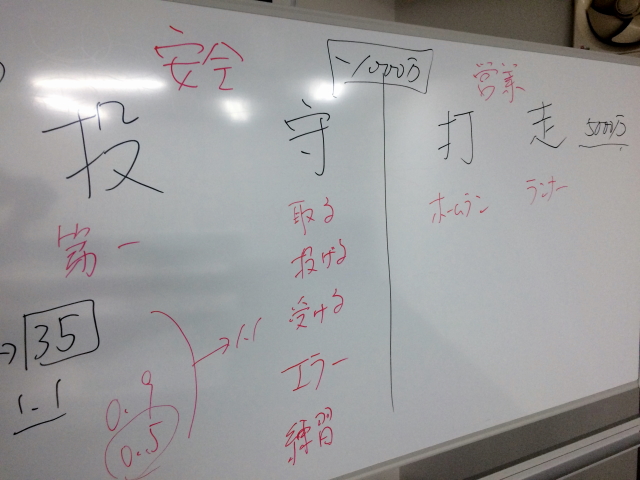 安全
-1000万
営業
投
守
打
走
5000万
第一
取る
投げる
受ける
エラー
練習
ホームラン
ランナー
→35
1.1
0.9
0.5
→1.1